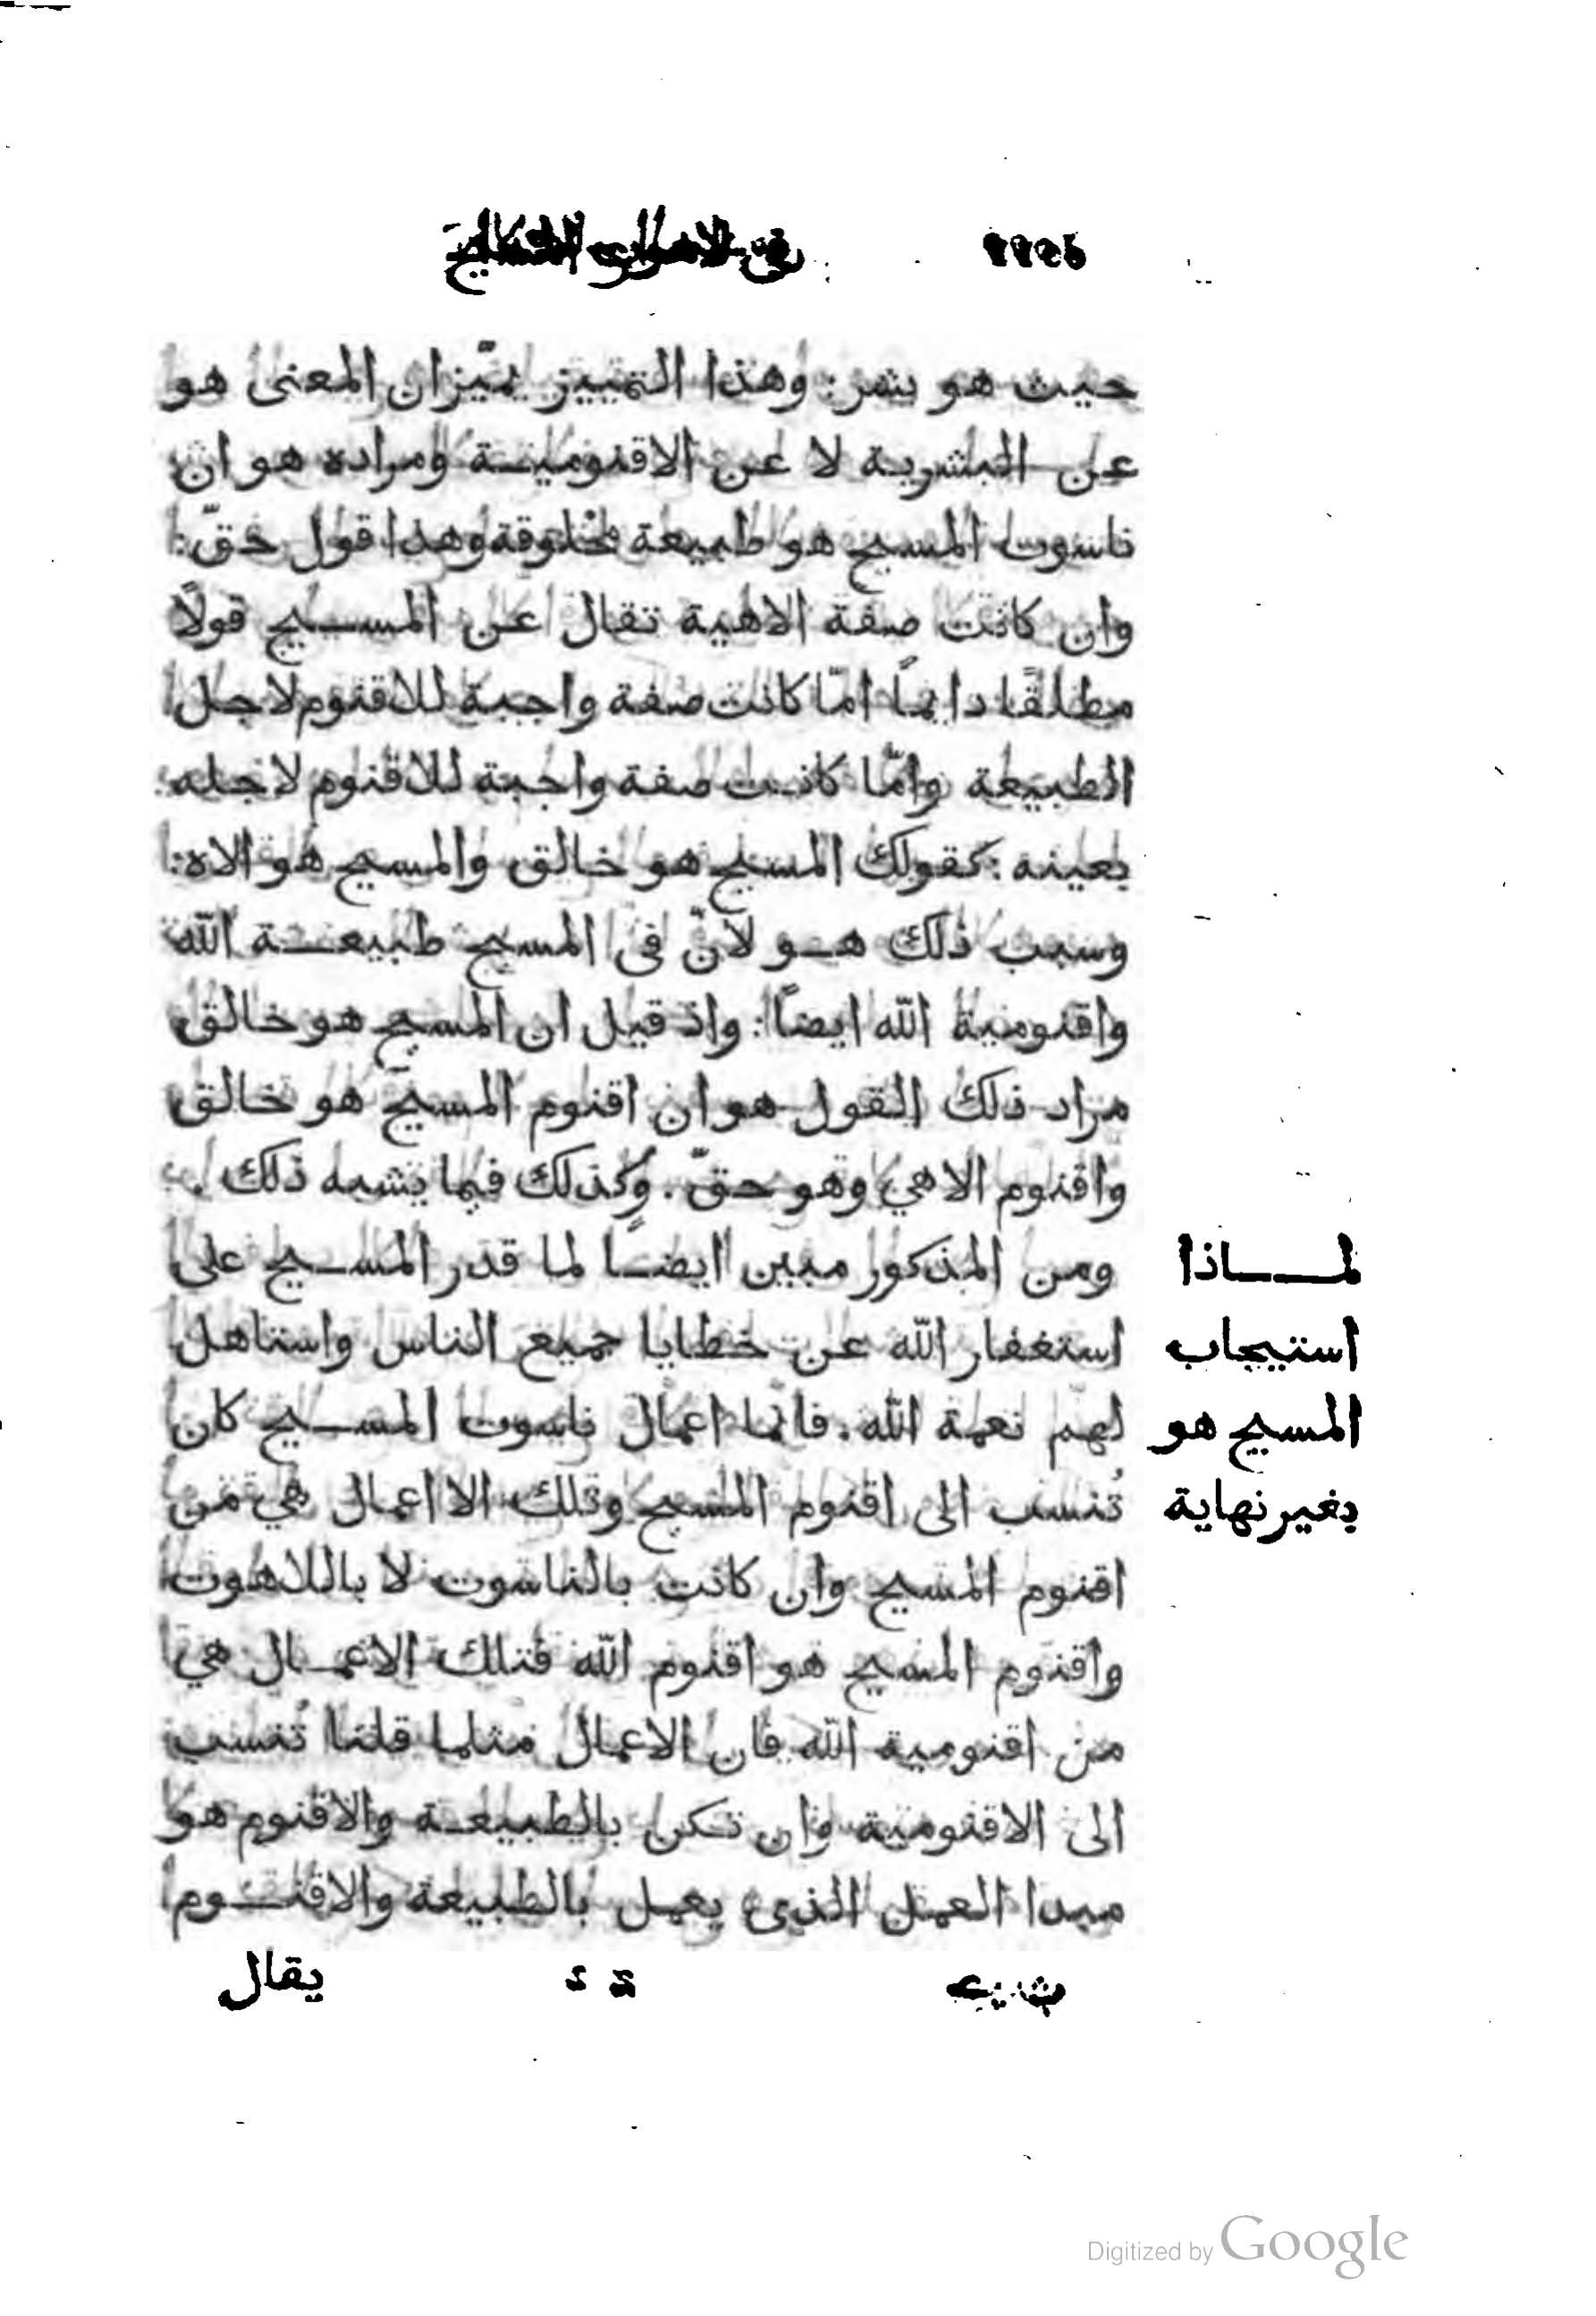 حيث هو بشر: وهذا التمييز يميّز ان المعنى هو
عن البشرية لا عن الاقنومية ومراده هو ان
ناسوت المسيح هو طبيعة مخلوقة وهذا قول حقّ:
وان كانت صفة الاهية تقال عن المسيح قولاً
مطلقًا دايمًا امّا كانت صفة واجبة للاقنوم لاجل
الطبيعة وامّا كانت صفة واجبة للاقنوم لاجله
بعينه: كقولك المسيح هو خالق والمسيح هو الاه:
وسبب ذلك هو لانّ فى المسيح طبيعة الله
واقنومية الله ايضاً: واذ قيل ان المسيح هو خالق
مراد ذلك القول هو ان اقنوم المسيح هو خالق
واقنوم الاهي وهو حقّ. وكذلك فيما يشبه ذلك.
ومن المذكور مبين ايضًا لما قدر المسيح على
استغفار الله عن خطايا جميع الناس واستاهل
لهم نعمة الله. فانّما اعمال ناسوت المسيح كان
تُنسب الى اقنوم المسيح وتلك الاعمال هي من
اقنوم المسيح وان كانت بالناسوت لا باللاهوت
واقنوم المسيح هو اقنوم الله فتلك الاعمال هي
من اقنومية الله فان الاعمال مثلما قلنا تُنسب
الى الاقنومية وان تكن بالطبيعة والاقنوم هو
مبدا العمل الذى يعمل بالطبيعة والاقنوم
يقال
لماذا
استيجاب
المسيح هو
بغير نهاية
Digitized by Google